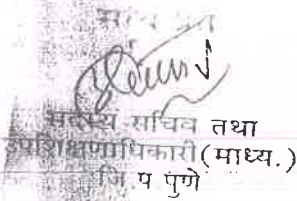 सदस्य सचिव तथा
उपशिक्षणाधिकारी (माध्य.)
जि प पुणे